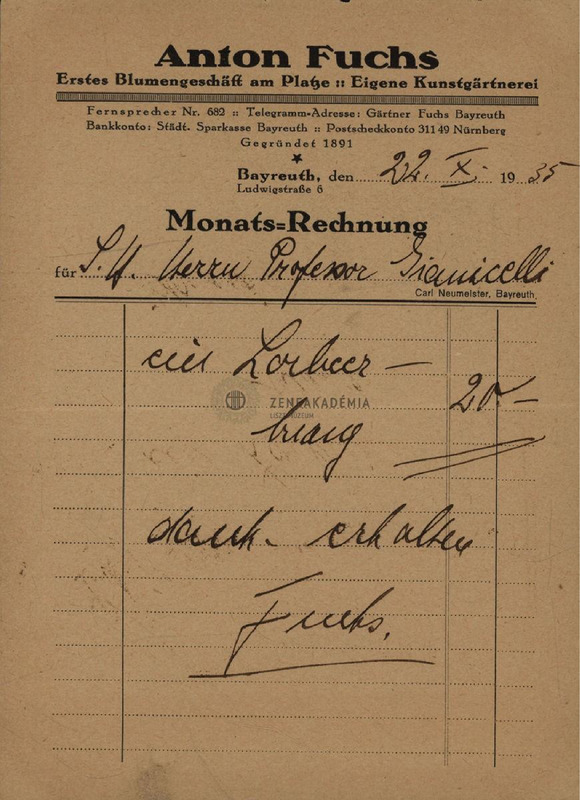 Anton Fuchs
Erstes Blumengeschäft am Platze :: Eigene Kunstgärtnerei
Fernsprecher Nr. 682 :: Telegramm-Adresse: Gärtner Fuchs Bayreuth
Bankkonto: Städt. Sparkasse Bayreuth :: Postscheckkonto 31149 Nürnberg
Gegründet 1891
Bayreuth, den 22. X. 1935
Ludwigstraße 6
Monats=Rechnung
für S. H. Herrn Professor Gianicelli
Carl Neumeister, Bayreuth.
ein Lorbeer—
ZENEAKADÉMIA
LISZT MÚZEUM
20.—
kranz
dank. erhalten
Fuchs.